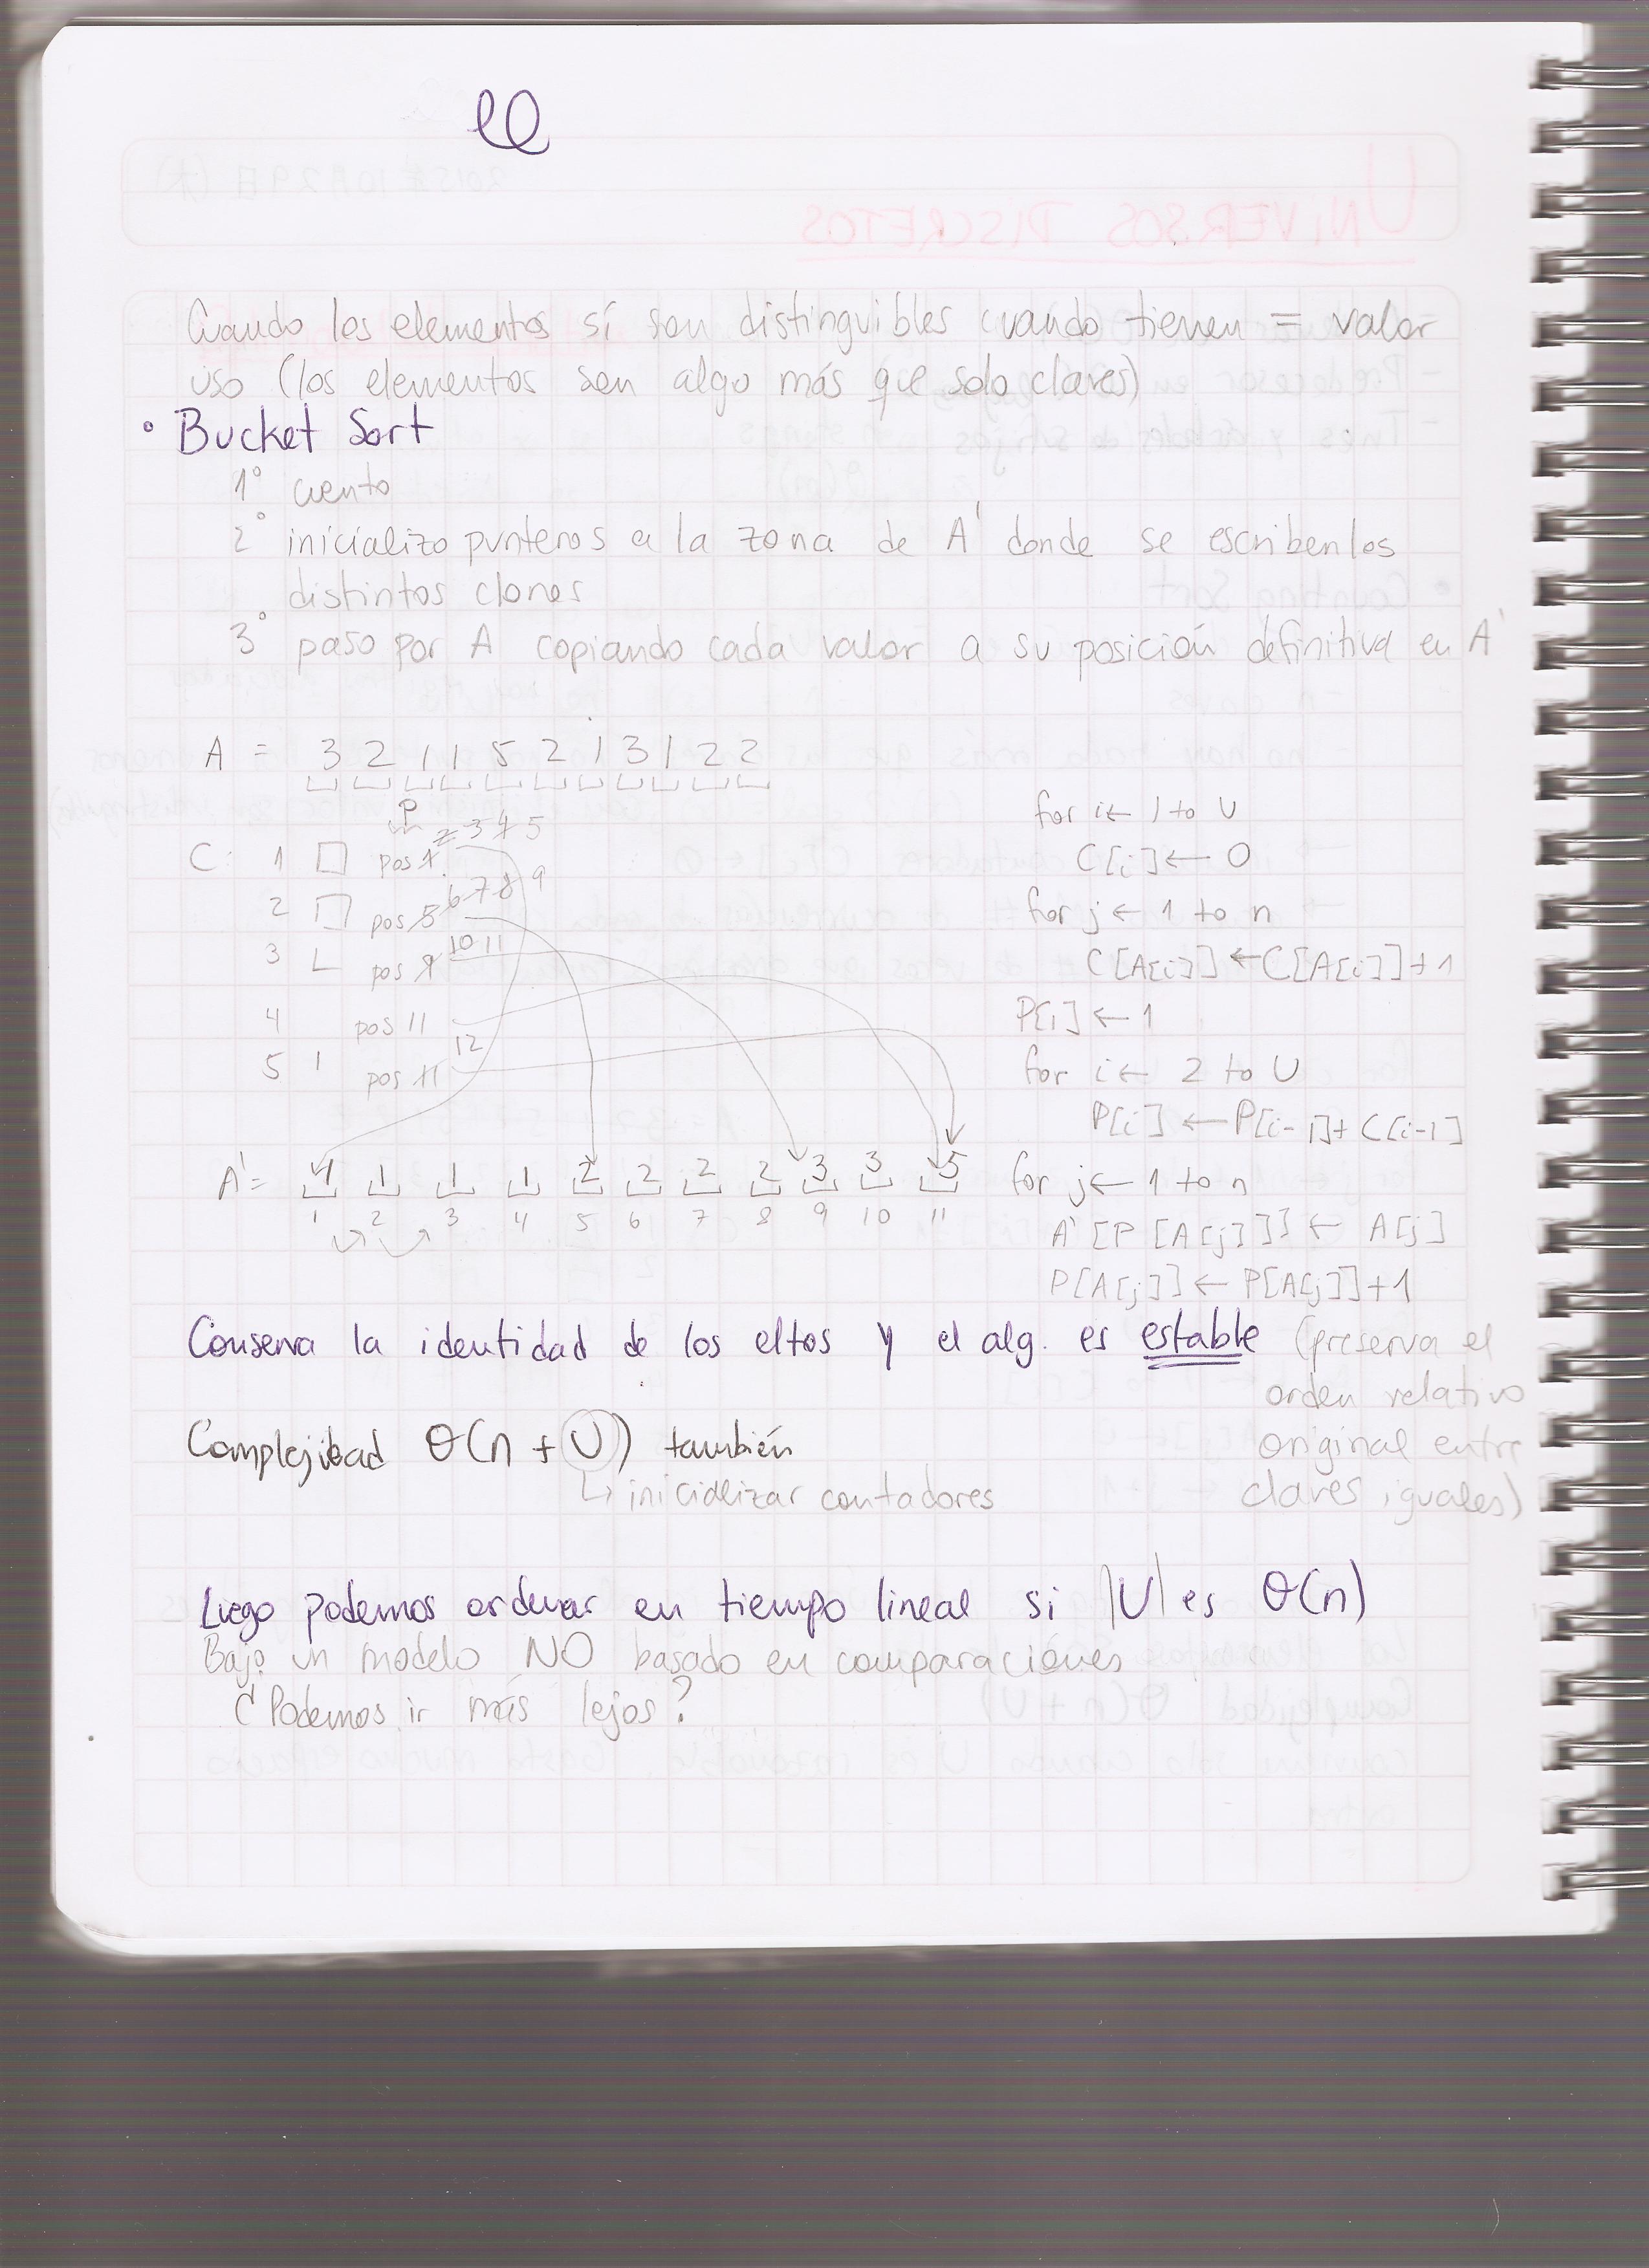 Cuando los elementos sí son distinguibles cuando tienen = valor
uso (los elementos son algo más que solo claves)
• Bucket Sort
1° cuento
2° inicializo punteros a la zona de A' donde se escriben los
distintos clones
3° paso por A copiando cada valor a su posición definitiva en A'
A = 3 2 1 1 5 2 1 3 1 2 2
P
C: 1 □ pos 1 2 3 4 5
2 pos 5 6 7 8 9
3 pos 9 10 11
4 pos 11
5 1 pos 11 12
A' = 1 1 1 1 2 2 2 2 3 3 5
1 2 3 4 5 6 7 8 9 10 11
for i ← 1 to U
C[i] ← 0
for j ← 1 to n
C[A[i]] ← C[A[i]]+1
P[i] ← 1
for i ← 2 to U
P[i] ← P[i-1]+C[i-1]
for j ← 1 to n
A'[P[A[j]]] ← A[j]
P[A[j]] ← P[A[j]]+1
Conserva la identidad de los eltos y el alg. es estable (preserva el
orden relativo
original entre
claves iguales)
Complejidad Θ(n + U) también
↳ inicializar contadores
Luego podemos ordenar en tiempo lineal si |U| es Θ(n)
Bajo un modelo NO basado en comparaciones
¿Podemos ir más lejos?